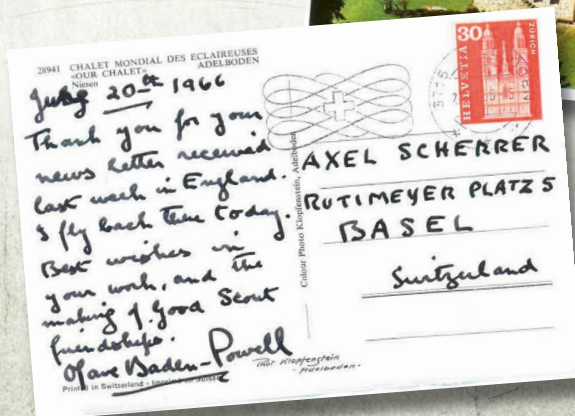 28941 CHALET MONDIAL DES ECLAIREUSES
«OUR CHALET» ADELBODEN
Niesen
July 20th 1966
Thank you for your
news letter received
last week in England.
I fly back there today.
Best wishes in
your work, and the
making of good Scout
friendships.
Olave Baden-Powell
Printed in Switzerland - Imprimé en Suisse
Colour Photo Klopfenstein, Adelboden
Phot. Klopfenstein
-Adelboden-
30
HELVETIA
ZÜRICH
AXEL SCHERRER
RUTIMEYER PLATZ 5
BASEL
Switzerland